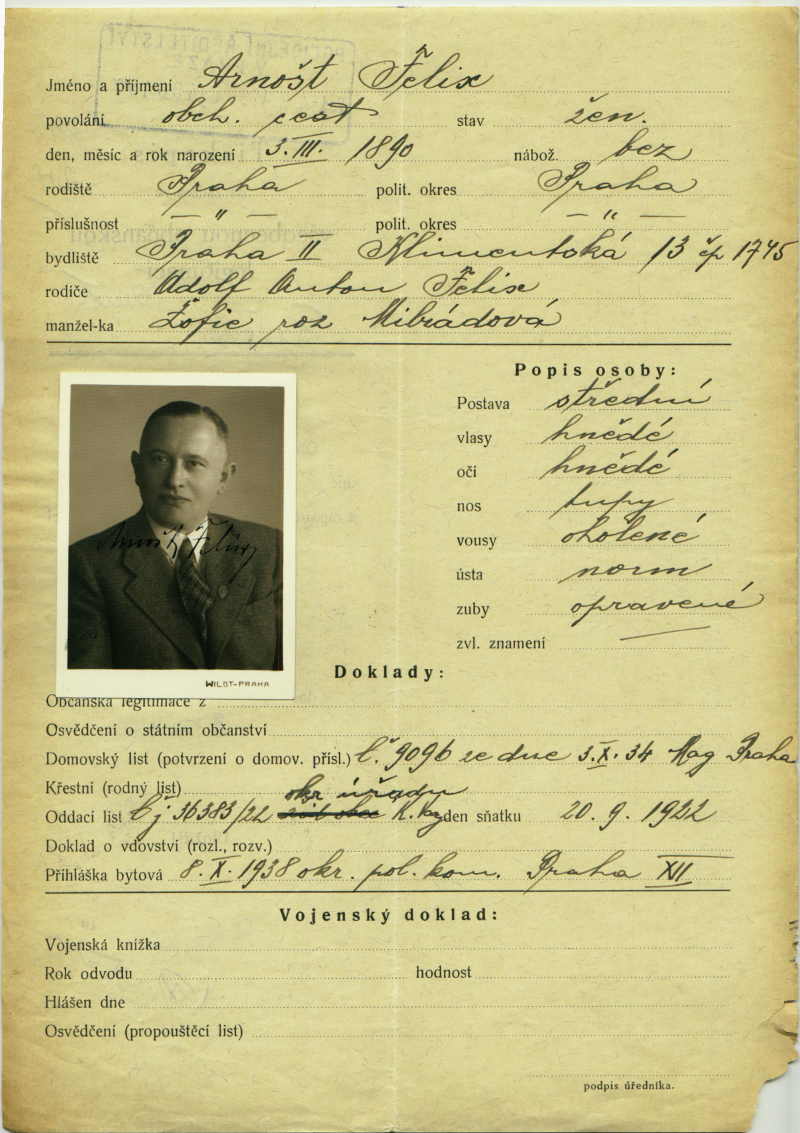 Jméno a příjmení Arnošt Felix
povolání obch. cest stav žen.
den, měsíc a rok narození 3. III. 1890 nábož. bez
rodiště Praha polit. okres Praha
příslušnost — " — polit. okres — " —
bydliště Praha II Klimentská 13 čp 1745
rodiče Adolf Anton Felix
manžel-ka Žofie roz
Popis osoby:
Postava střední
vlasy hnědé
oči hnědé
nos tupý
vousy oholené
ústa norm
zuby opravené
zvl. znamení —
Arnošt Felix
WILDT-PRAHA
Doklady:
Občanská legitimace z
Osvědčení o státním občanství
Domovský list (potvrzení o domov. přísl.) č. 9096 ze dne 3. X. 34 Mag Praha
Křestní (rodný list)
okr úřadu
Oddací list čj 36383/22 den sňatku 20. 9. 1922
Doklad o vdovství (rozl., rozv.)
Přihláška bytová 8. X. 1938 okr. pol. kom. Praha XII
Vojenský doklad:
Vojenská knížka
Rok odvodu hodnost
Hlášen dne
Osvědčení (propouštěcí list)
podpis úředníka.